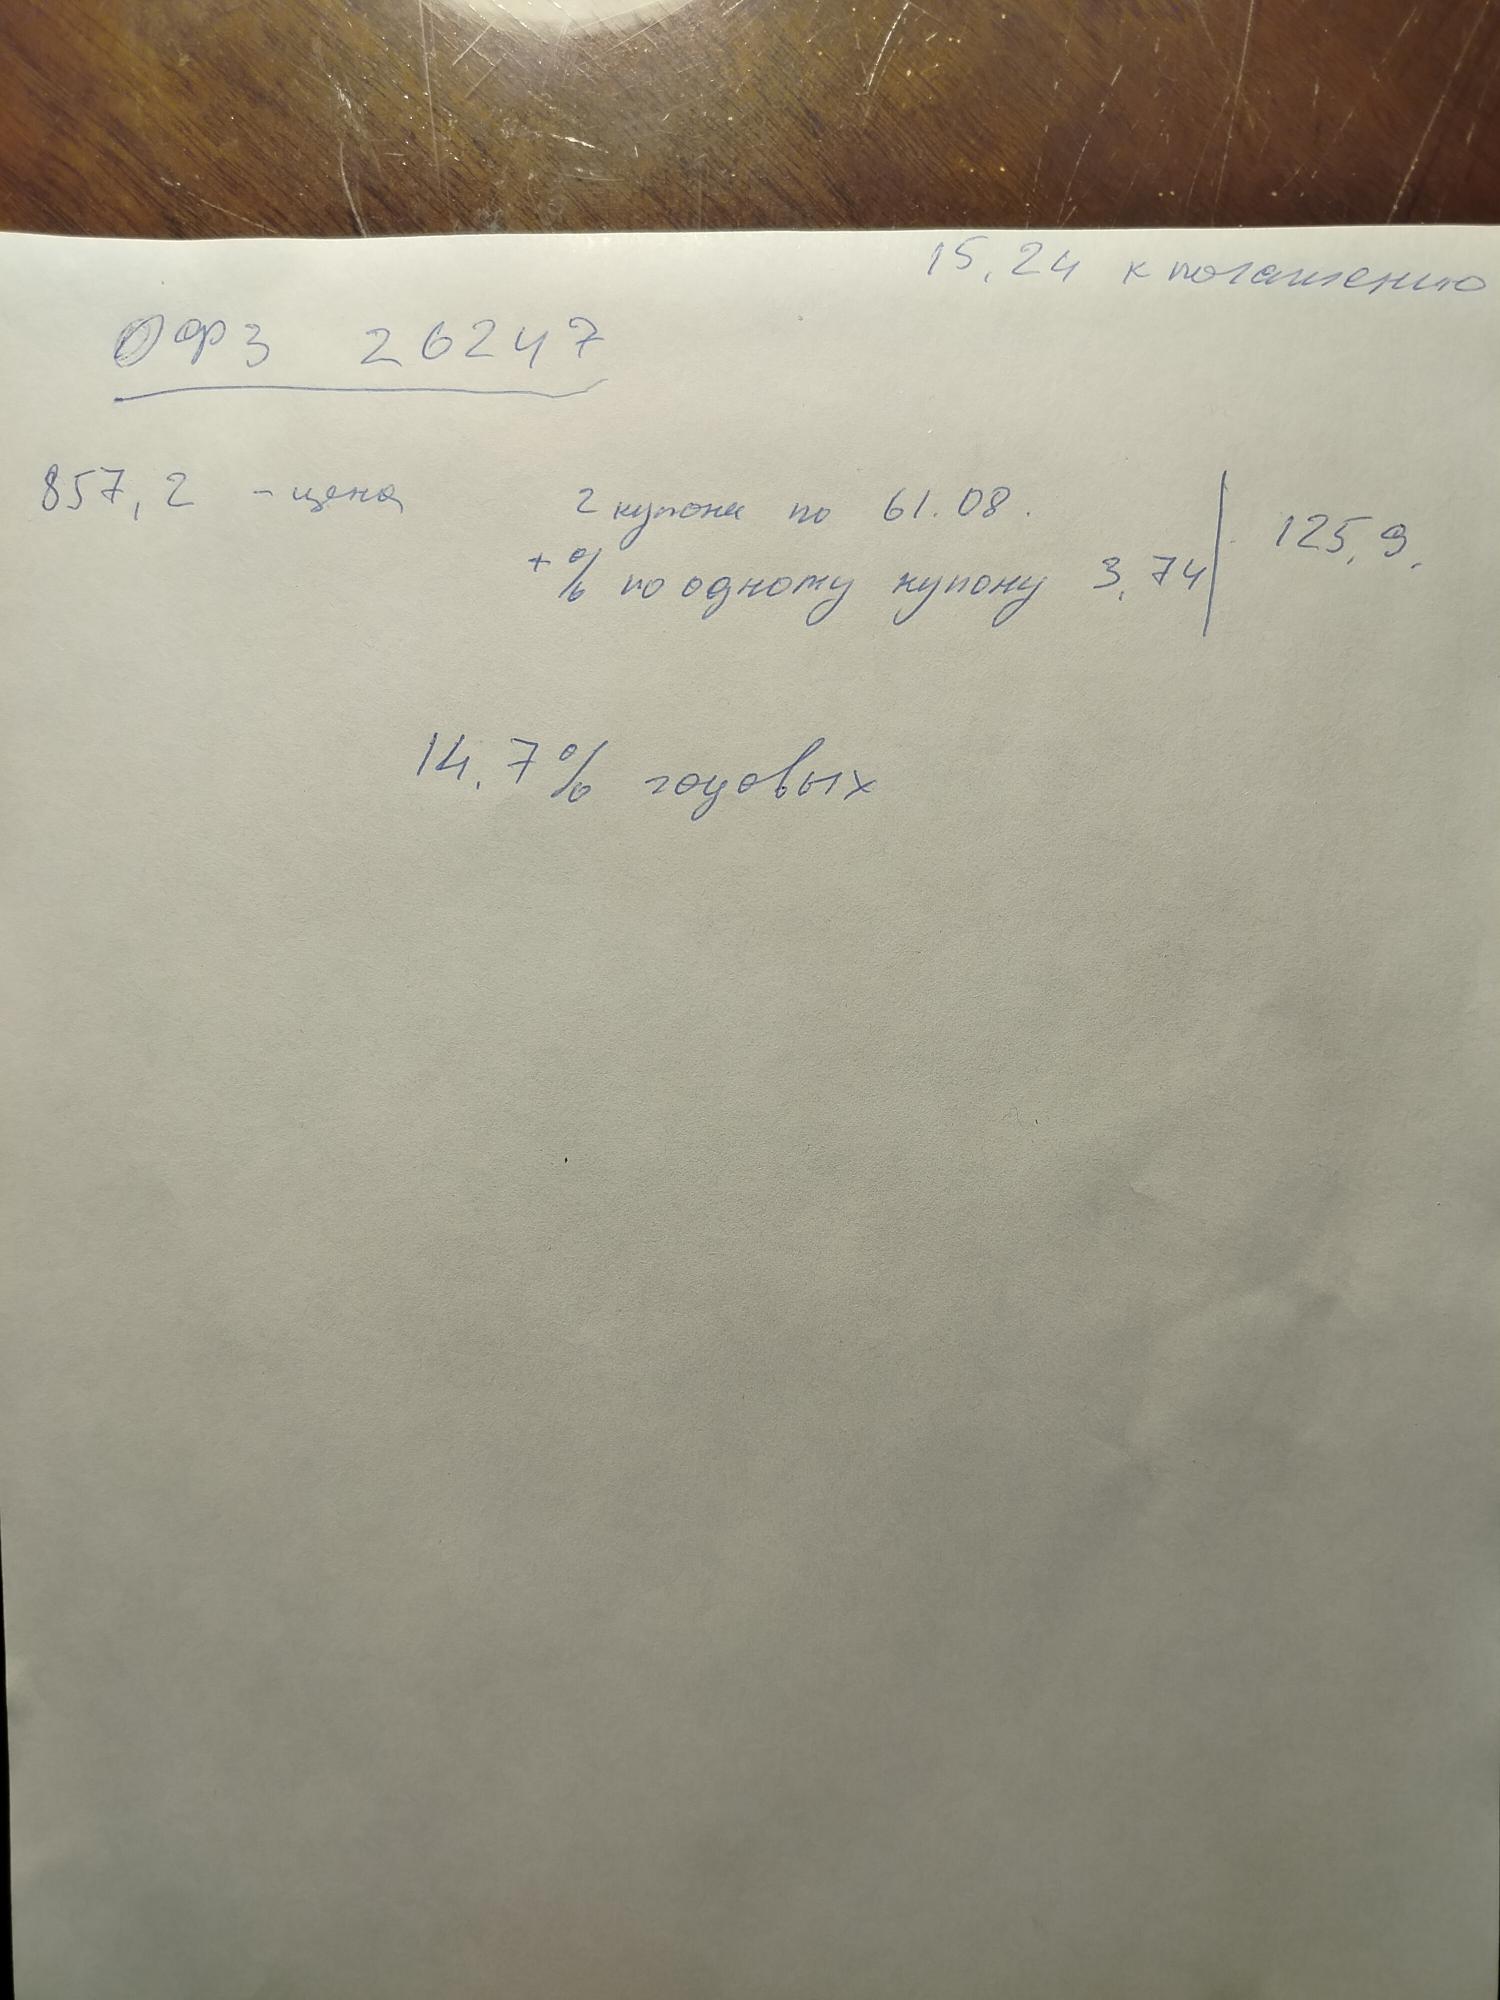 15,24 к погашению
ОФЗ 26247
857,2 - цена
2 купона по 61.08.
+ % по одному купону 3,74
125,9.
14.7% годовых